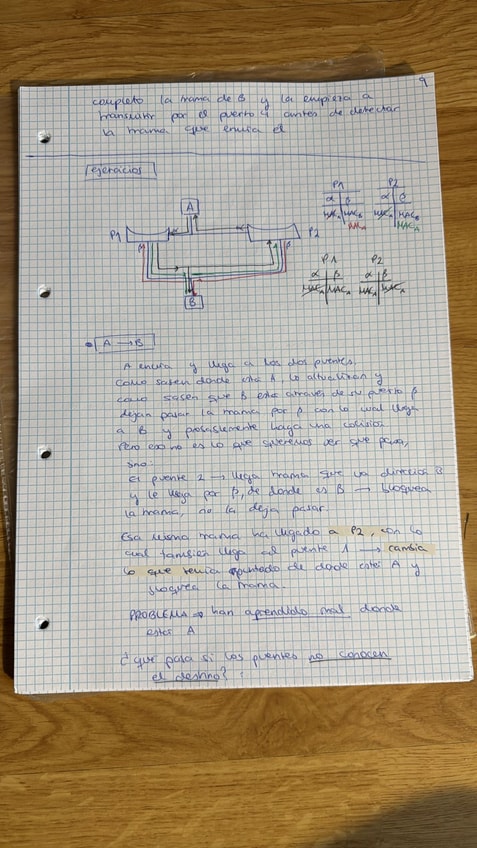 9
completo la trama de B y la empieza a
transmitir por el puerto α antes de detectar
la trama que envia el
ejercicios
P1 P2
α β α β
MAC_A MAC_B MAC_A MAC_B
MAC_A MAC_A
A
P1 α α P2
β β
B
P1 P2
α β α β
MAC_A MAC_A MAC_A MAC_A
A → B
A envia y llega a los dos puentes.
como saben donde está A, lo actualizan y
como saben que B está a través de su puerto β
dejan pasar la trama por β con lo cual llega
a B y probablemente haya una colisión
Pero eso no es lo que queremos ver que pasa,
sino:
El puente 2 → llega trama que va dirección B
y le llega por β, de donde es B → bloquea
la trama, no la deja pasar.
Esa misma trama ha llegado a P2, con lo
cual también llega al puente 1 → cambia
lo que tenía apuntado de donde está A y
bloquea la trama.
PROBLEMA ⇒ han aprendido mal donde
está A
¿que pasa si los puentes no conocen
el destino?